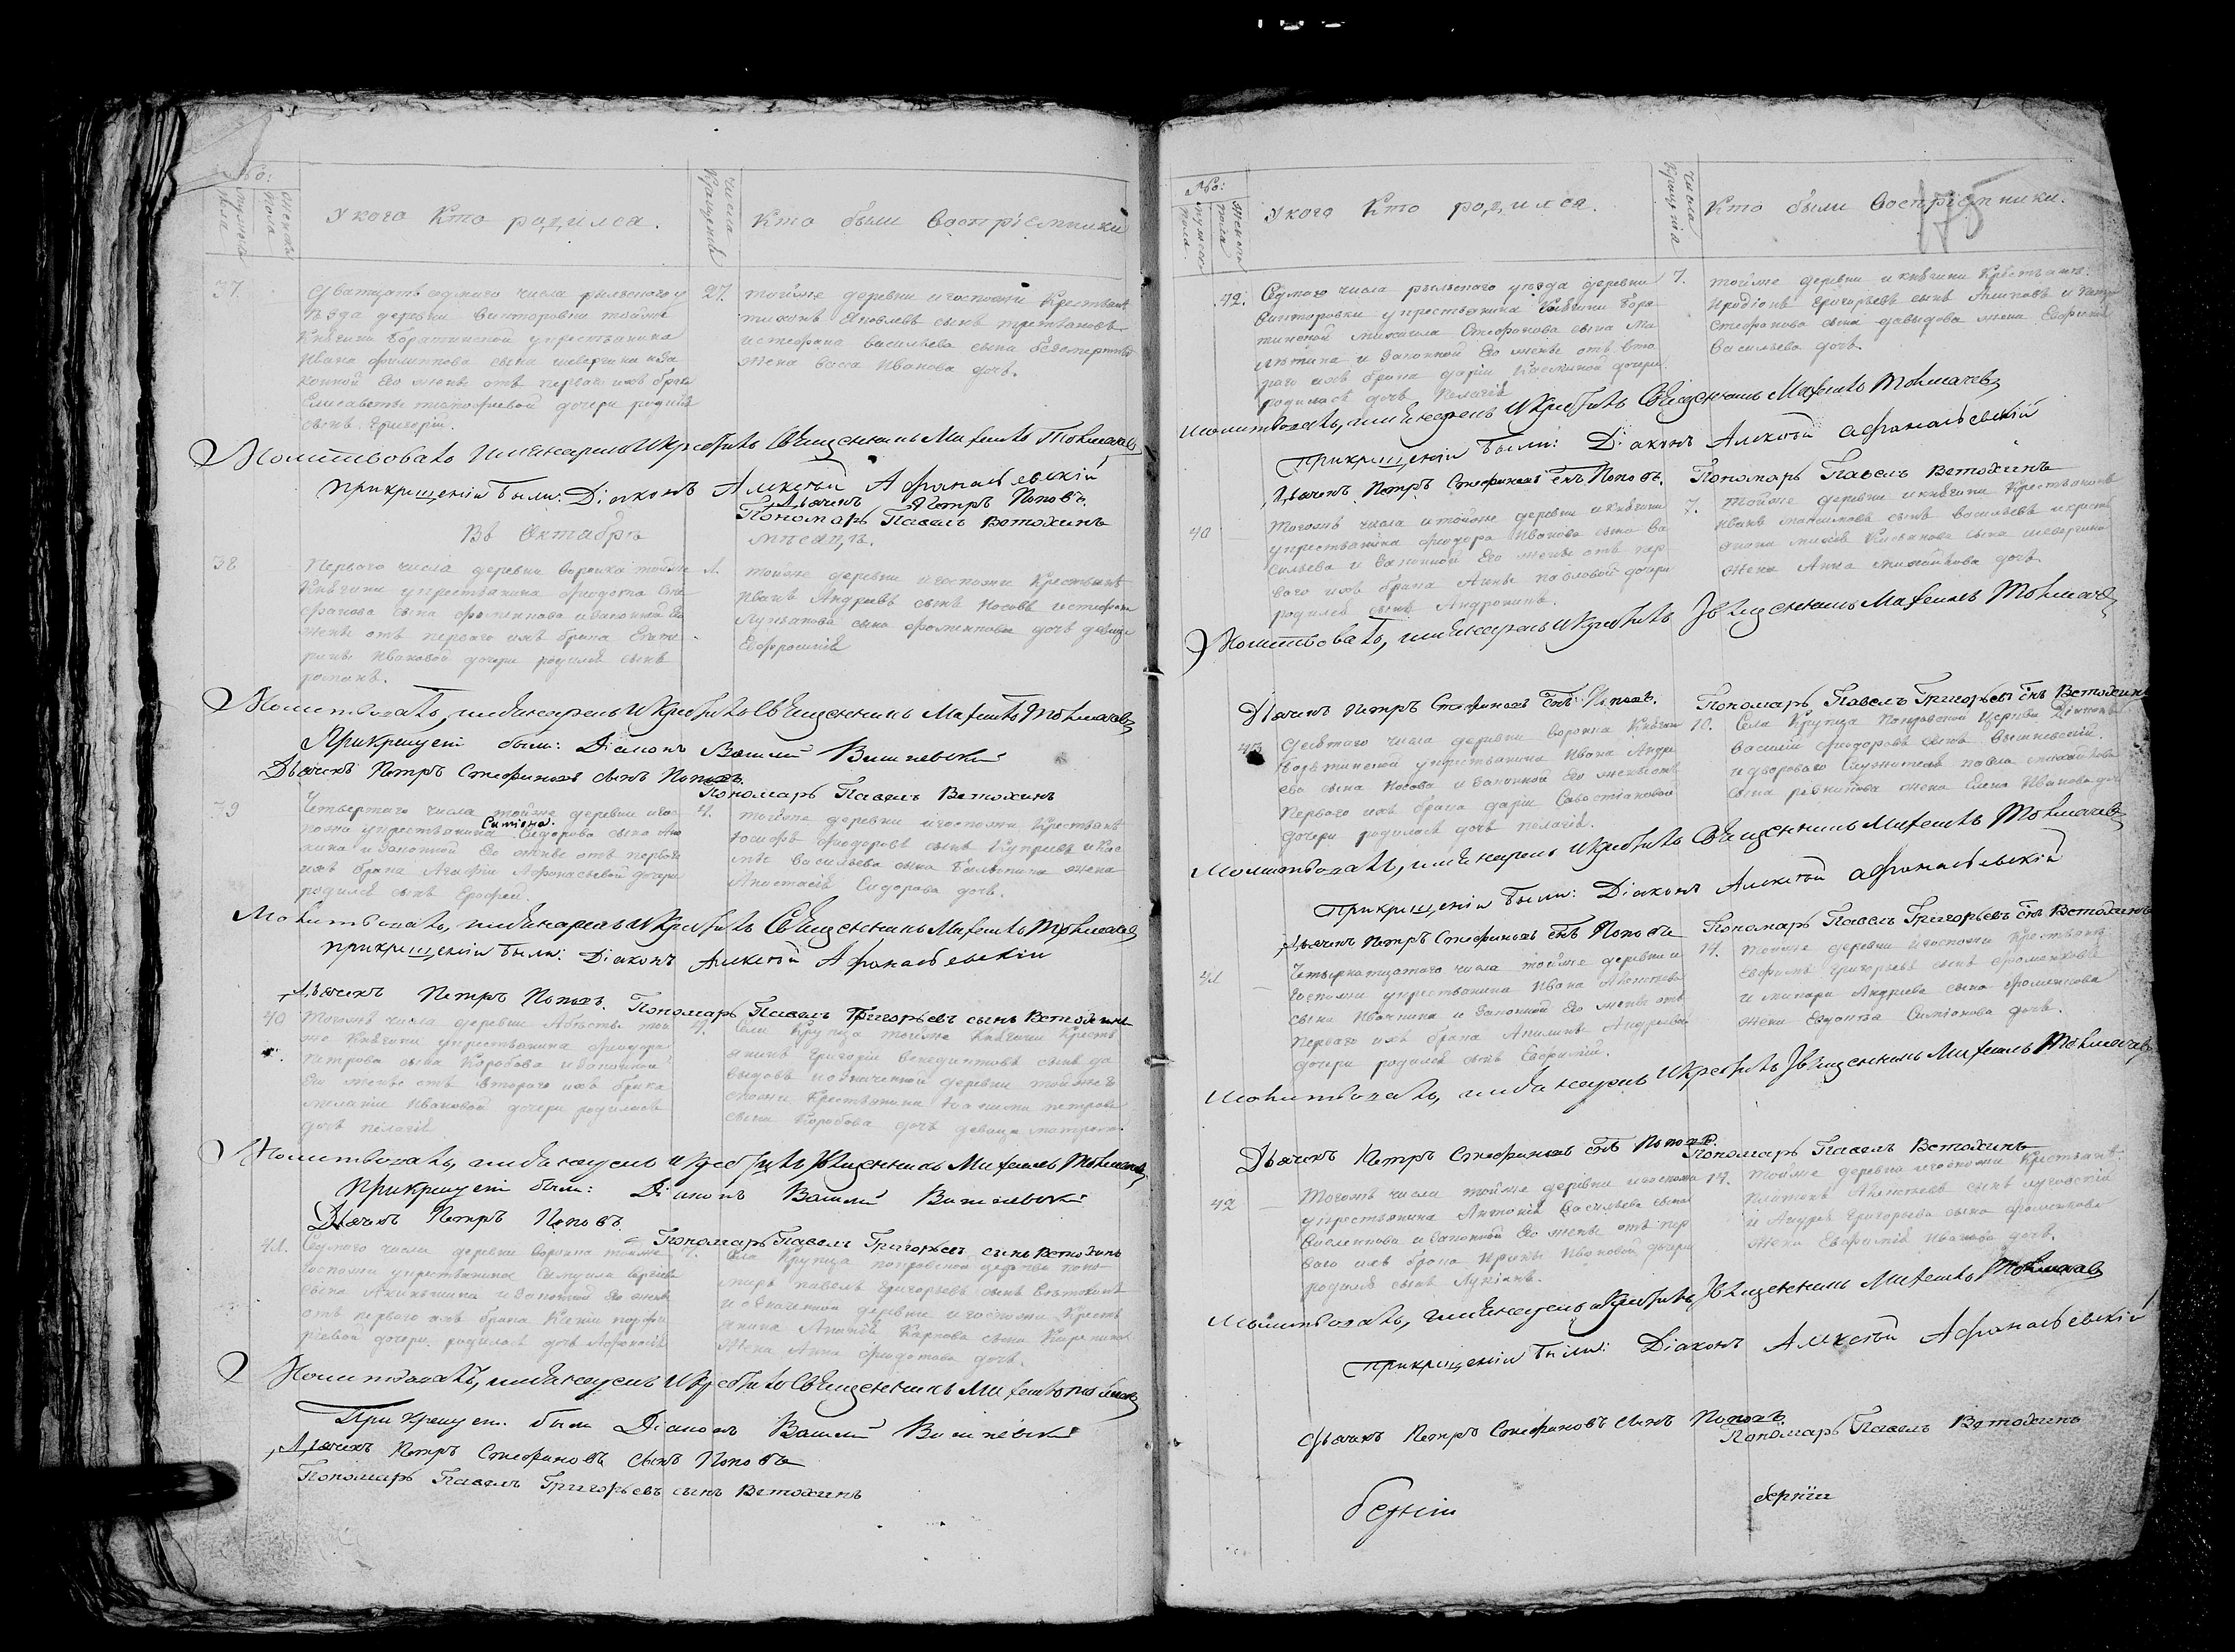 No:
мужеска пола
женска пола
У кого Кто родился.
числа Крещенiя
Кто были Воспрiемники
37.
Дватцать седмаго числа рыльского у
ѣзда деревни Викторовки тойже
Княгини Борятинской у крестьянина
Ивана филиппова сына шевергина и за
конной Его женѣ отъ перваго ихъ брака
Елисаветы тимофеевой дочери родился
сынъ Григорiй.
27.
тойже деревни и госпожи Крестьянинъ
тихонъ Яковлевъ сынъ третьяковъ
и стефана васильева сына
жена васа Иванова дочь.
Молитвовалъ именарекъ и крестилъ Священникъ Михаилъ Толмачевъ
прикрещенiи были: Дiаконъ Алексѣй Афанасьевскiй
Дьячекъ Петръ Поповъ.
Пономарь Павелъ Ветохинъ
Въ Октябрѣ
мѣсяцѣ.
38
Перваго числа деревни воронка тойже
Княгини у крестьянина феодота Сте
фанова сына фоменкова и законной Его
женѣ отъ перваго ихъ брака Екате
рины Ивановой дочери родился сынъ
романъ.
1.
тойже деревни и госпожи Крестьянинъ
Иванъ Андреевъ сынъ Носовъ и стефана
Лукьянова сына фоменкова дочь девица
Евфросинiя
Молитвовалъ, именарекъ и крестилъ Священникъ Михаилъ Толмачевъ
Прикрещенi были: Дiаконъ Василий Вишневскi
Дьячекъ Петръ Стефановъ сынъ Поповъ.
Пономарь Павелъ Ветохинъ
39
Четвертаго числа тойже деревни и гос
пожи у крестьянина Симiона Сидорова сына
и законной Его женѣ отъ перваго
ихъ брака Агафiи Афонасьевой дочери
родился сынъ Ерофей.
4.
тойже деревни и госпожи Крестьянинъ
Iосифъ феодоровъ сынъ Куприевъ и Кос
мы васильева сына жена
Анастасiя Сидорова дочь.
Молитвовалъ, именарекъ и крестилъ Священникъ Михаилъ Толмачевъ
прикрещенiи были: Дiаконъ Алексѣй Афанасьевскiй
Дьячекъ Петръ Поповъ. Пономарь Павелъ Григорьевъ сынъ Ветохинъ
40
Тогожъ числа деревни той
же Княгини у крестьянина феодора
Петрова сына Коробова и законной
Его женѣ отъ втораго ихъ брака
меланiи Ивановой дочери родилась
дочь пелагiя
4.
Села Крупца тойже Княгини Кресть
янинъ Григорiй Венедиктовъ сынъ да
выдовъ и означенной деревни тойже г
спожи Крестьянина петрова
сына Коробова дочь девица матрона.
Молитвовалъ, именарекъ и крестилъ Священникъ Михаилъ Толмачевъ
прикрещенi были: Дiаконъ Василий Вишневскi
Дьячекъ Петръ Поповъ
Пономарь Павелъ Григорьевъ сынъ Ветохинъ
41.
Седмаго числа деревни воронка тойже
Госпожи у крестьянина Самуила Сергiева
сына Акиньшина и законной Его женѣ
отъ перваго ихъ брака Ксенiи порфи
рiевой дочери родилась дочь Афанасiя
7.
Села Крупца покровской церкви поно
марь павелъ Григорьевъ сынъ Ветохинъ
и означенной деревни и госпожи Кресть
янина Ананiя Карпова сына
Жена Анна феодотова дочь.
Молитвовалъ, именарекъ и крестилъ Священникъ Михаилъ Толмачевъ
При крещен. были Дiаконъ Василий Вишневскi
Дьячекъ Петръ Стефановъ сынъ Поповъ
Пономарь Павелъ Григорьевъ сынъ Ветохинъ
175
No:
мужеска пола
женска пола
У кого Кто родился.
числа Крещенiя
Кто были Воспрiемники.
42.
Седмого числа рыльского уѣзда деревни
Викторовки у крестьянина Княгини Боря
тинской михаила Стефанова сына Ма
лютина и законной Его женѣ отъ вто
раго ихъ брака дарiи Касминой дочери
родилась дочь Пелагiя
7.
тойже деревни и княгини Крестьянинъ
Иродiонъ Григорьевъ сынъ Алиповъ и Петра
Стефанова сына давыдова жена Евфросинiя
Васильева дочь.
Молитвовалъ, именарекъ и крестилъ Священникъ Михаилъ Толмачевъ
прикрещенiи были: Дiаконъ Алексѣй Афанасьевскiй
Дьячекъ Петръ Стефановъ снъ Поповъ. Пономарь Павелъ Ветохинъ
40
Тогожъ числа и тойже деревни и княгини
у крестьянина феодора Иванова сына Ва
сильева и законной Его женѣ отъ пер
ваго ихъ брака Анны павловой дочери
родился сынъ Андроникъ.
7.
тойже деревни и княгини Крестьянинъ
Иванъ максимовъ сынъ васильевъ и крест
янина сына шевергина
жена Анна михайлова дочь
Молитвовалъ, именарекъ и крестилъ Священникъ Михаилъ Толмачевъ
Дьячекъ Петръ Стефановъ снъ Поповъ. Пономарь Павелъ Григорьевъ снъ Ветохинъ
43
Девятаго числа деревни воронка Княгини
Борятинской у крестьянина Ивана Андре
ева сына Носова и законной Его женѣ отъ
Перваго ихъ брака дарiи Савостiановой
дочери родилась дочь пелагiя.
10.
Села Крупца Покровской Церкви Дiаконъ
василiй феодоровъ сынъ вишневский.
и двороваго Служителя павла михайлова
сына жена Елена Иванова дочь
Молитвовалъ, именарекъ и крестилъ Священникъ Михаилъ Толмачевъ
прикрещенiи были: Дiаконъ Алексѣй Афанасьевскiй
Дьячекъ Петръ Стефановъ снъ Поповъ Пономарь Павелъ Григорьевъ снъ Ветохинъ
41
Четырнатцатого числа тойже деревни и
Госпожи у крестьянина Ивана
сына и законной Его женѣ отъ
Перваго ихъ брака Акилины Андреевой
дочери родился сынъ Евфимiй.
14.
тойже деревни и госпожи Крестьянинъ
Евфимъ Григорьевъ сынъ фоменковъ
и макара Андреева сына фоменкова
жена Евдокiя Симiонова дочь.
Молитвовалъ, именарекъ и крестилъ Священникъ Михаилъ Толмачевъ
Дьячекъ Петръ Стефановъ снъ Поповъ. Пономарь Павелъ Ветохинъ
42
Тогожъ числа тойже деревни и госпожи
у крестьянина Антонiя Васильева сына
и законной Его женѣ отъ пер
ваго ихъ брака Ирины Ивановой дочери
родился сынъ Лукiанъ.
14.
тойже деревни и госпожи Крестьянинъ
сынъ
и Андрея Григорьева сына фоменкова
жена Евфимiя Иванова дочь.
Молитвовалъ, именарекъ и крестилъ Священникъ Михаилъ Толмачевъ
прикрещенiи были: Дiаконъ Алексѣй Афанасьевскiй
Дьячекъ Петръ Стефановъ сынъ Поповъ
Пономарь Павелъ Ветохинъ